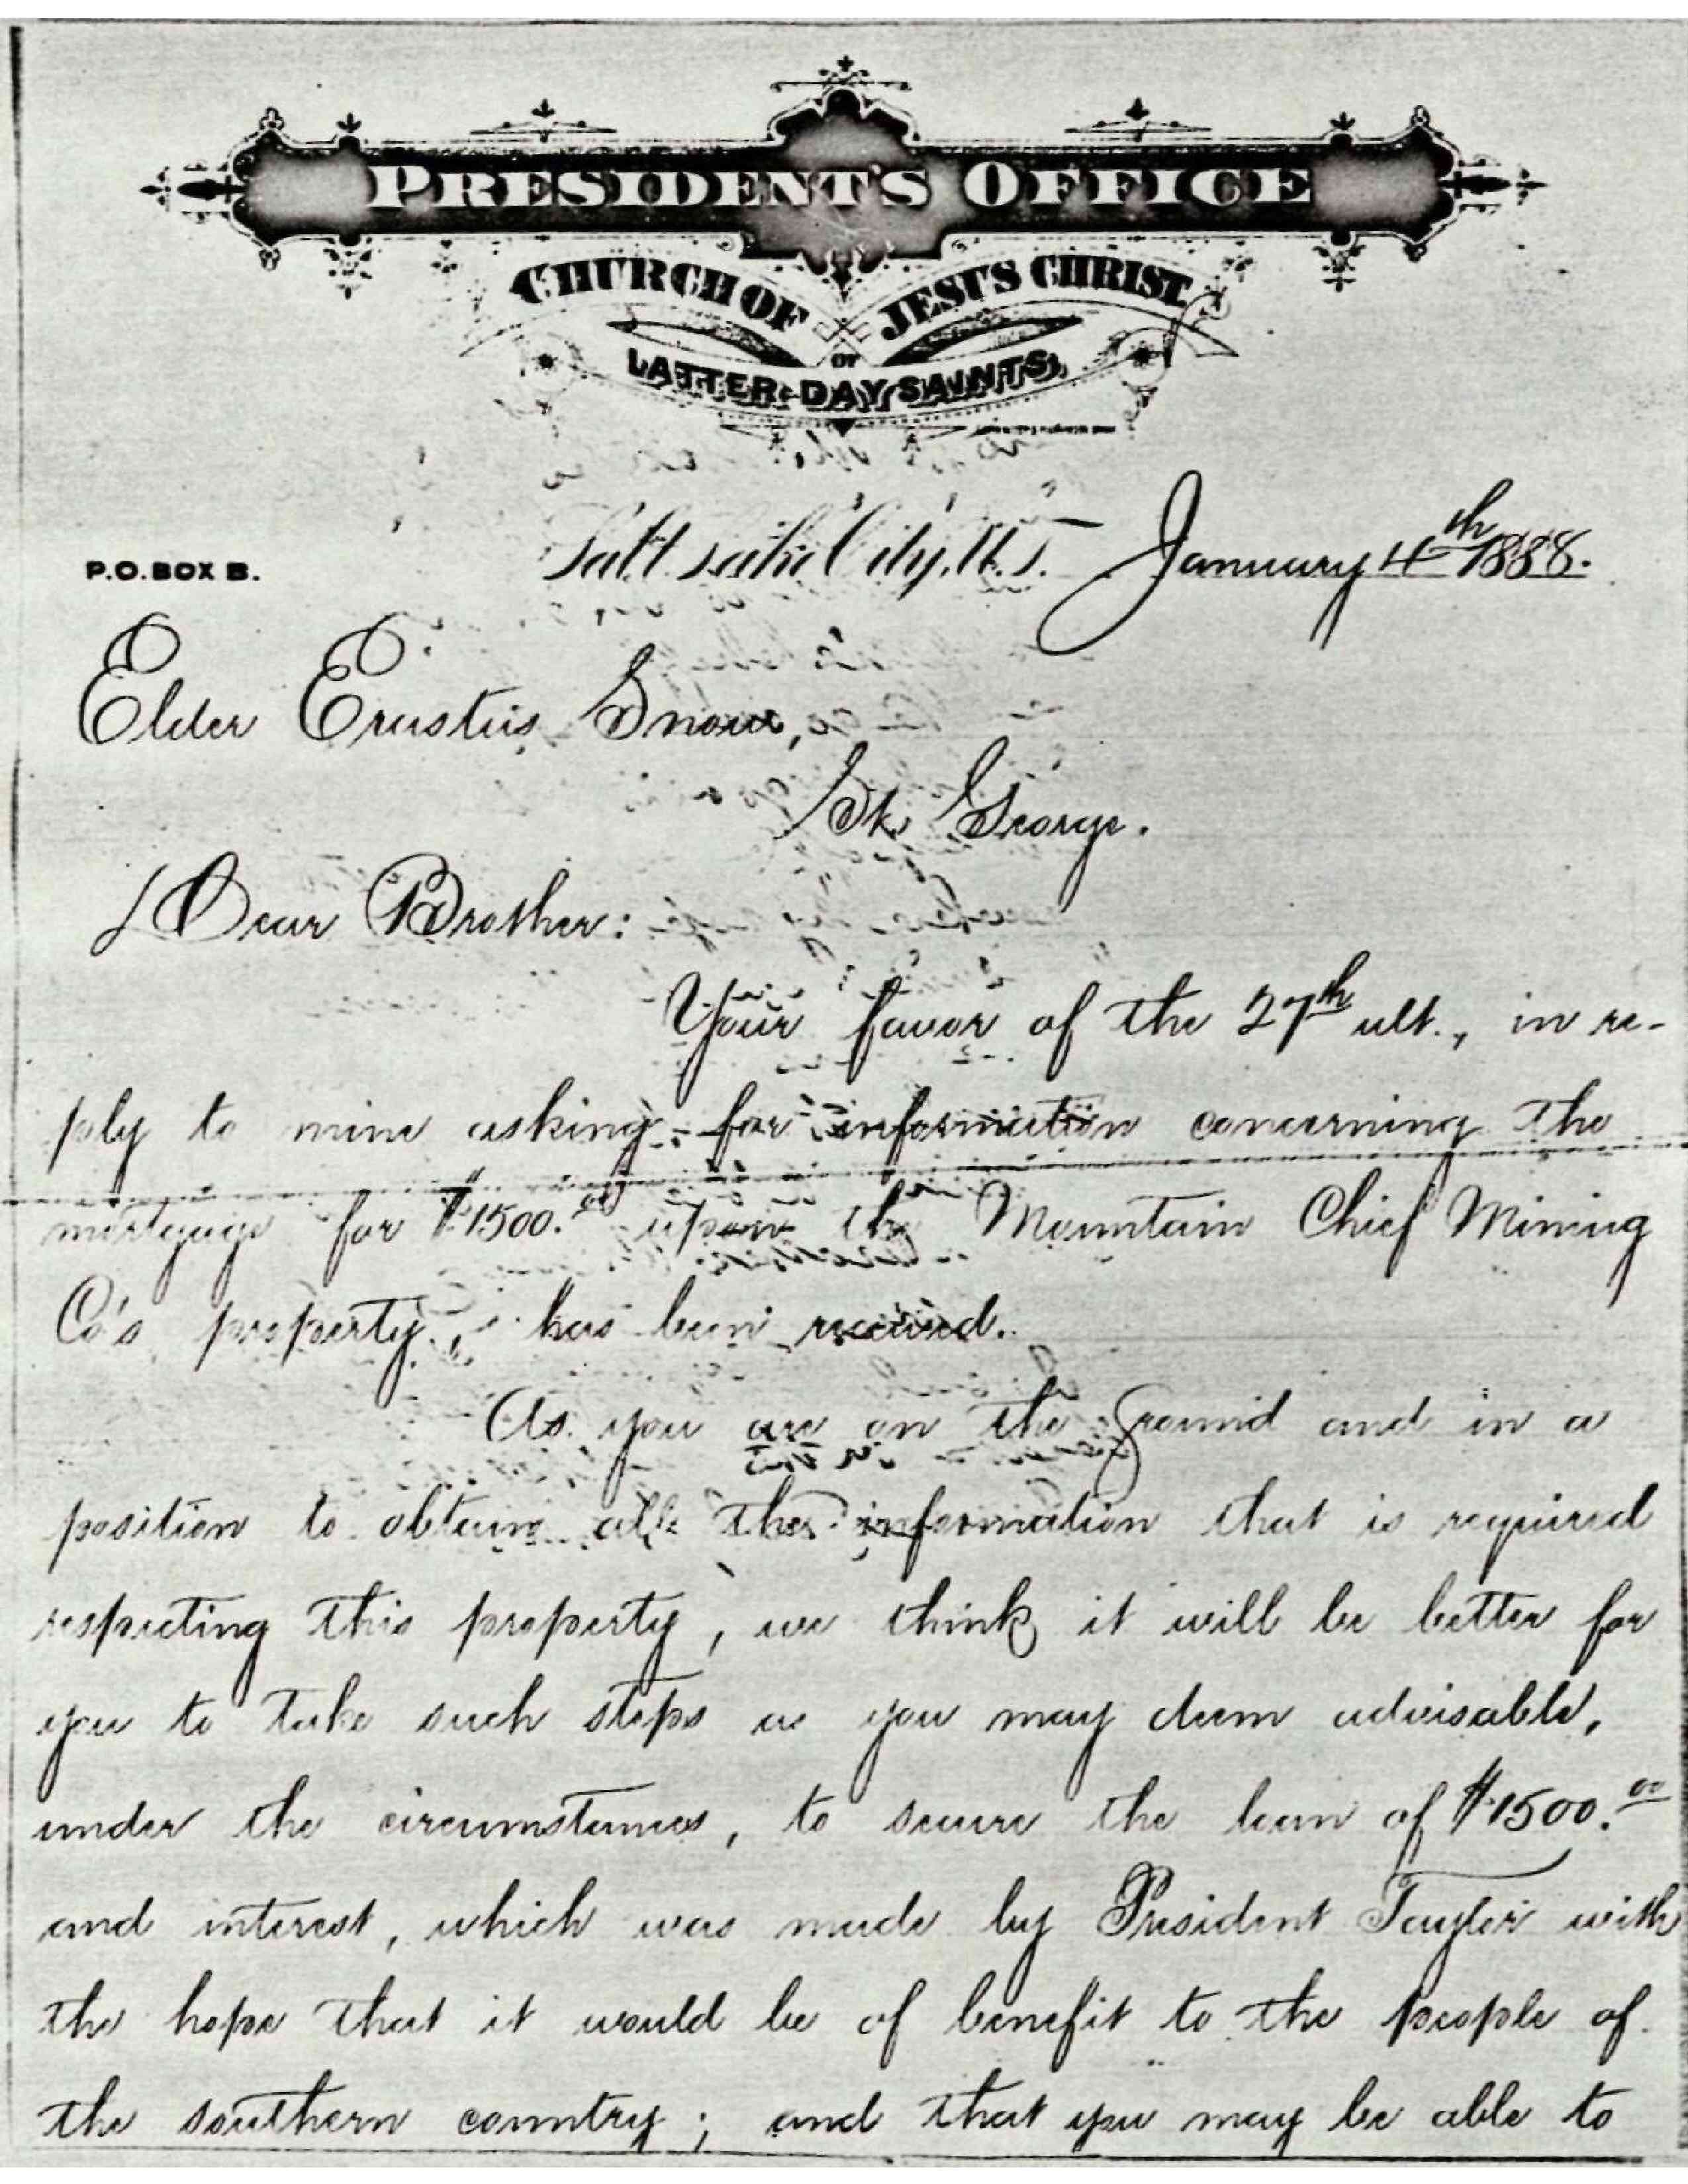 PRESIDENT'S OFFICE
CHURCH OF JESUS CHRIST
OF
LATTER-DAY SAINTS.
P.O. BOX B.
Salt Lake City, U.T. January 4th 1888.
Elder Erastus Snow,
St. George.
Dear Brother:
Your favor of the 27th ult., in re-
ply to mine asking for information concerning the
mortgage for $1500.00 upon the Mountain Chief Mining
Co's property, has been received.
As you are on the ground and in a
position to obtain all the information that is required
respecting this property, we think it will be better for
you to take such steps as you may deem advisable,
under the circumstances, to secure the loan of $1500.00
and interest, which was made by President Taylor with
the hope that it would be of benefit to the people of
the southern country; and that you may be able to